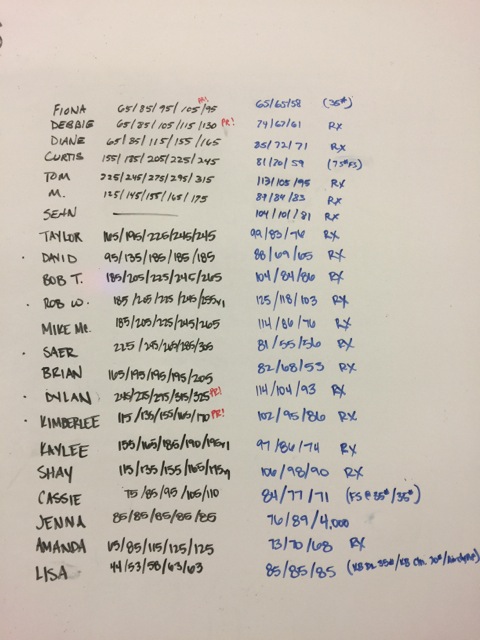 PR!
FIONA 65/85/95/105/95 65/65/58 (35#)
DEBBIE 65/85/105/115/130 PR! 74/67/61 RX
DIANE 65/85/115/155/165 85/72/71 RX
CURTIS 155/185/205/225/245 81/70/59 (75#FS)
TOM 225/245/275/295/315 113/105/95 RX
M. 125/145/155/165/175 89/84/83 RX
SEAN 104/101/81 RX
TAYLOR 165/195/225/245/245 99/83/76 RX
DAVID 95/135/185/185/185 88/69/65 RX
BOB T. 185/205/225/245/265 104/84/86 RX
ROB W. 185/205/225/245/255x1 125/118/103 RX
MIKE Mc. 185/205/225/245/265 114/86/76 RX
SAER 225/245/265/285/305 81/55/56 RX
BRIAN 165/195/195/195/205 82/68/53 RX
DYLAN 245/275/315/325 PR! 114/104/93 RX
KIMBERLEE 115/135/155/165/170 PR! 102/95/86 RX
KAYLEE 155/165/185/190/195x1 97/86/74 RX
SHAY 115/135/155/165/175 106/98/90 RX
CASSIE 75/85/95/105/110 84/77/71 (FS @ 35#/35#)
JENNA 85/85/85/85/85 76/89/4,000
AMANDA 65/85/115/125/125 73/70/68 RX
LISA 44/53/58/63/63 85/85/85 (KB DL 35#/KB